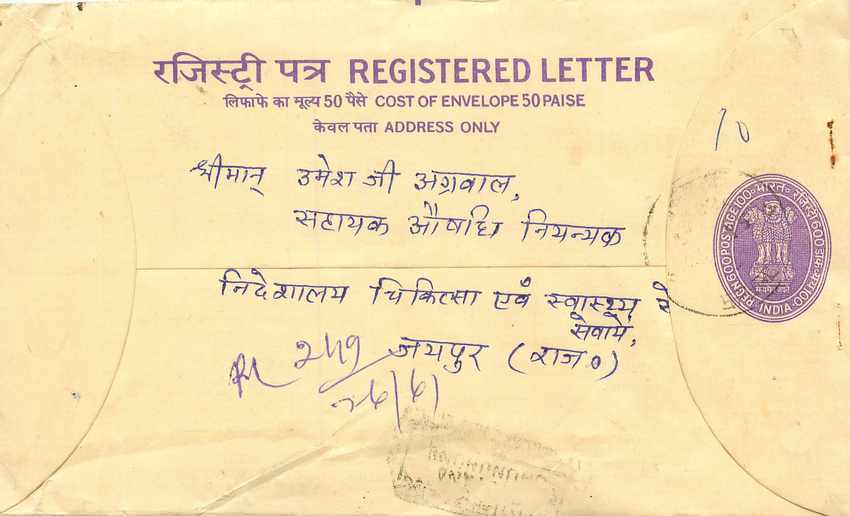 रजिस्ट्री पत्र REGISTERED LETTER
लिफाफे का मूल्य 50 पैसे COST OF ENVELOPE 50 PAISE
केवल पता ADDRESS ONLY
10
श्रीमान् उमेश जी अग्रवाल,
सहायक औषधि नियन्त्रक
निदेशालय चिकित्सा एवं स्वास्थ्य
सेवायें,
जयपुर (राज०)
249
भारत रजिस्ट्री 600 डाक 100
REGN 600 POSTAGE 100
INDIA